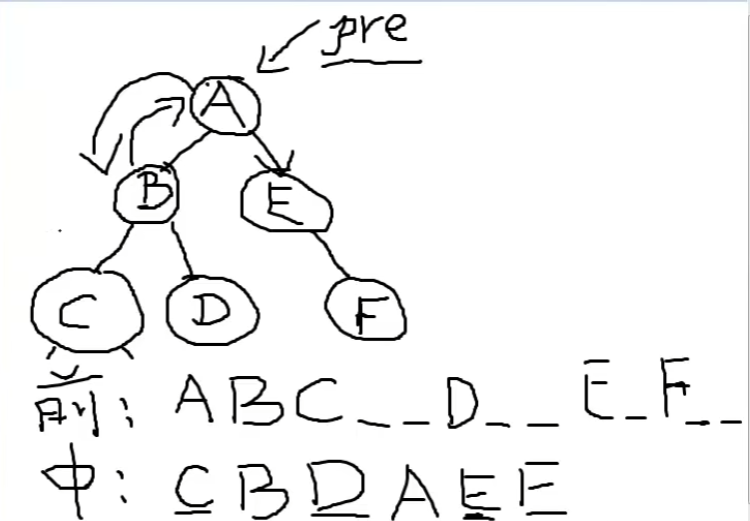 pre
A
B E
C D F
前: A B C _ _ D _ _ E _ F _ _
中: C B D A E F